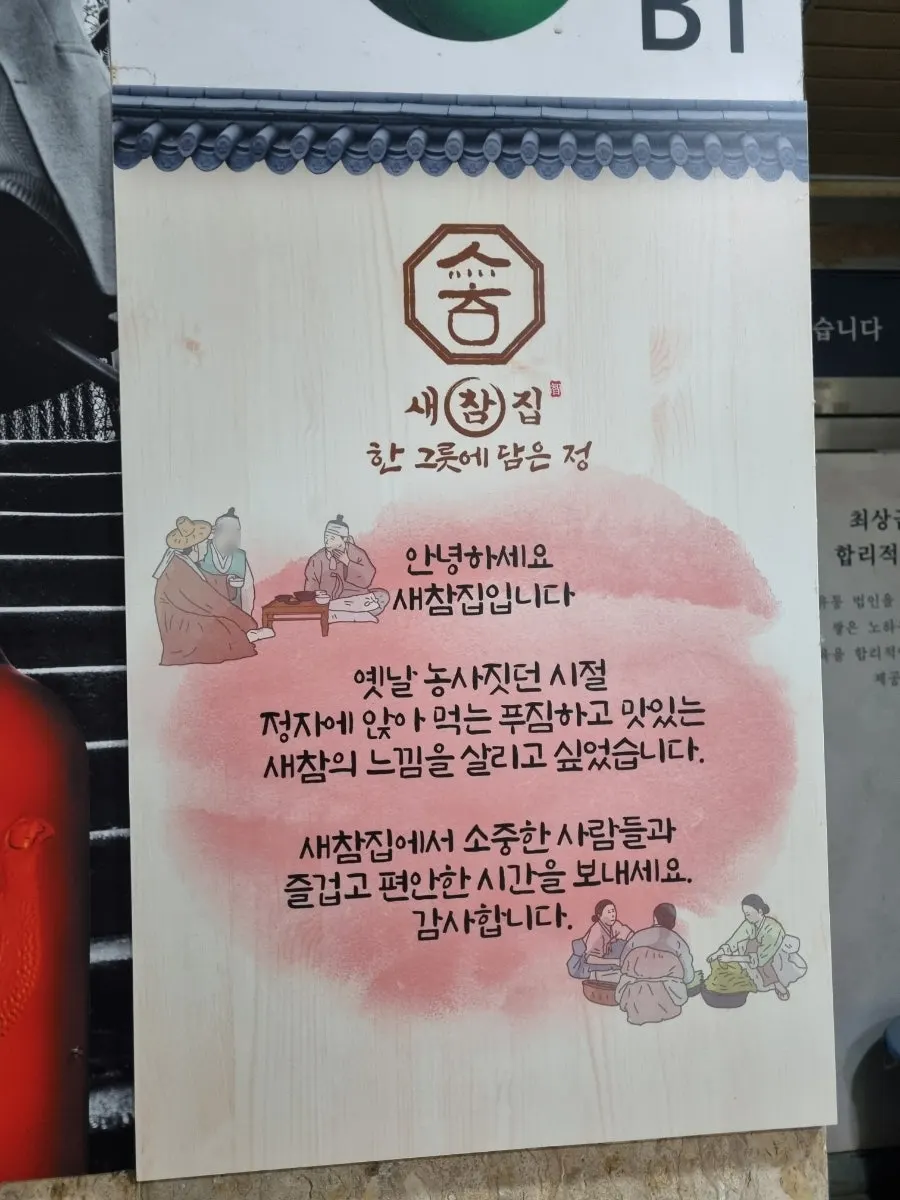 B1
새참집
한 그릇에 담은 정
안녕하세요
새참집입니다
옛날 농사짓던 시절
정자에 앉아 먹는 푸짐하고 맛있는
새참의 느낌을 살리고 싶었습니다.
새참집에서 소중한 사람들과
즐겁고 편안한 시간을 보내세요.
감사합니다.
습니다
합리적